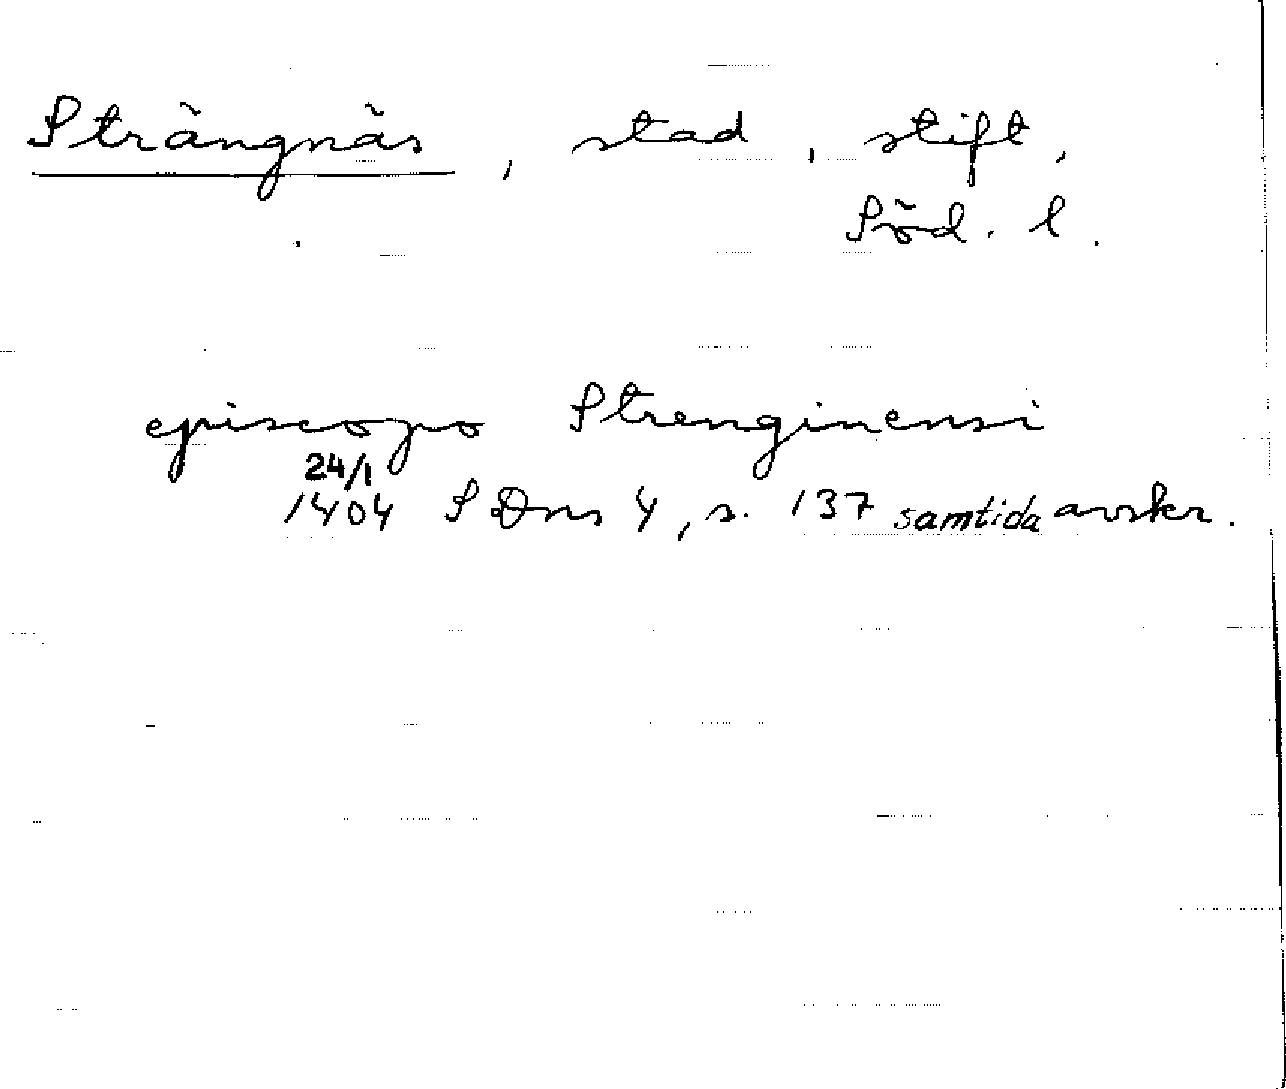 Strängnäs, stad, stift,
Söd. l.
episcopo Strenginensi
24/1
1404 SDns 4, s. 137 samtida avskr.